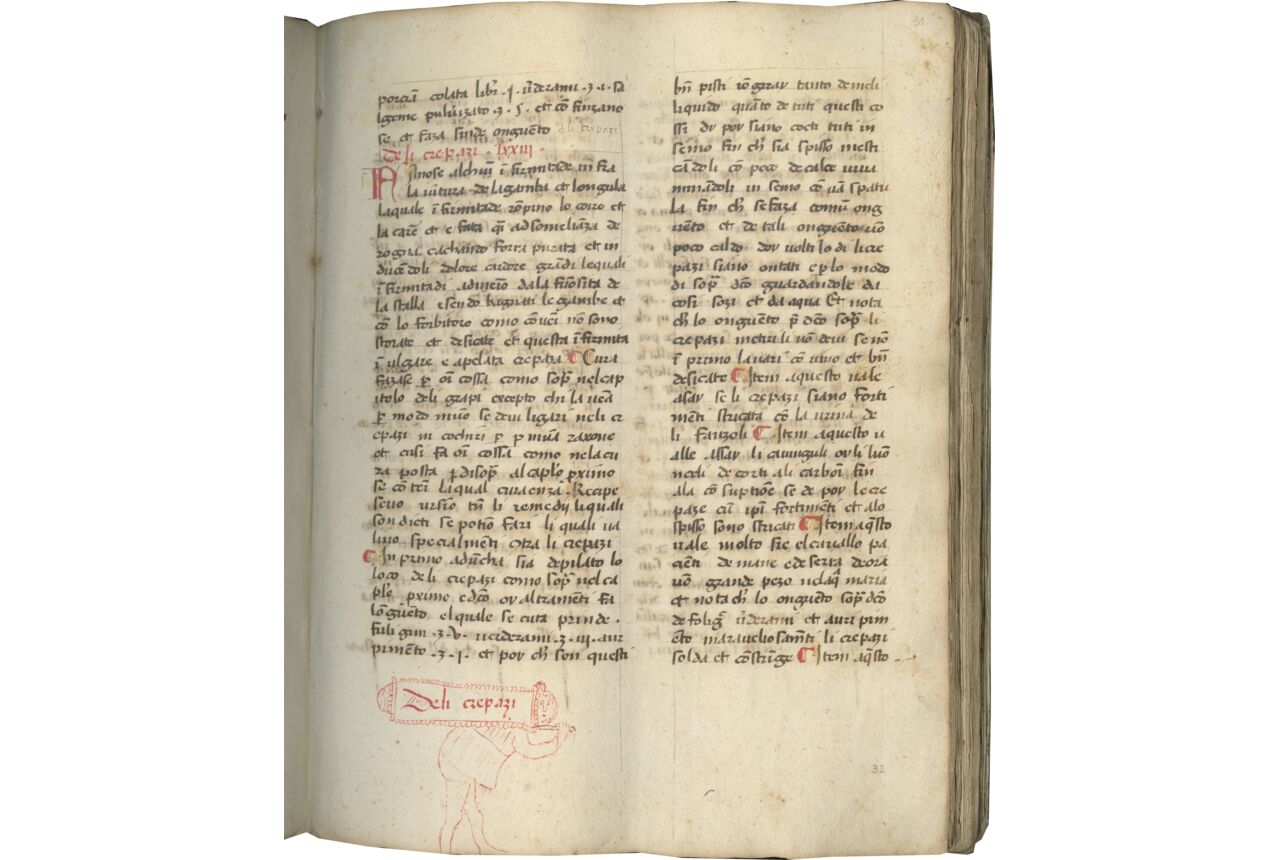 31
porcin colata libr .j. v̄deranni .ʒ.1. sa
lgeme puluizato .ʒ.5. et cō sinzano
se et faza sinde onguēto deli crepazi
Deli crepazi . lxxiii .
Nasinose alchuī ī firmitade in fra
la iūtura de la gamba et longula
laquale ī firmitade rōpino lo coiro et
la carē et e fata q̄i ad someliāza de
rogna cachādo forta purata et in
ducēdoli dolore ardore grādi le quali
ī firmitadi adiueio dala fumosita de
la stalla esendo bagnati le gambe et
cō lo forbitoro como cōueī nō sono
storate et desicate et questa ī firmita
ī ulgare e apelata crepaza ¶ Cura
fazase p̄ oī cossa como sop̄ nel cap
itolo deli grapi excepto chi la uēa
p̄ modo niuno se deui ligari neli cr
epazi in cochiri p̄ p niuna raxone
et cusi fa oī cossa como nela cu
ra posta p disop̄ al cap̄lo p̄ximo
se cō tēī la qual cura enza . Recipe
seuo ursino tn̄ li remedij li quali
son dicti se potino fari li quali ua
lino specialmēti ꝯtra li crepazi
¶ In primo aduncha sia depilato lo
loco deli crepazi como sop̄ nel ca
plo pximo e dc̄o or altramēti fa
lōguēto el quale se cuta prinde .
fuligini .ʒ.v. uerderanni .ʒ.iij. aur
pimento .ʒ.1. et por ch̄ sen questi
Deli crepazi
bn̄ pisti iōgirar tanto de meli
liquido quāto de tuti questi co
ssi dr por siano cocti tuti in
semo fin ch̄ sia spisso mesti
cādoli cō poco de calce uiua
minādoli in semo cō uā spatu
la fin ch̄ se faza comū ong
uēto et de tali onguēto uno
poco caldo dor volti lo di li cre
pazi siano ontati e p lo modo
di sop̄ dc̄o guardandole da
cosi sozi et da aqua Et nota
ch̄ lo onguēto p̄ dc̄o sop̄ li
crepazi metri li nō deui se nō
ī primo lauari cō uino et bn̄
desicate ¶ Item a questo uale
asar se li crepazi siano forti
mēti fricata cō la urina de
li fanzoli ¶ Item a questo u
alle assar li cauinguli or li luo
nedi de torti ali carboni fin
ala cō suptiōe se de por le cre
paze cū ip̄i fortimēti et alo
spisso sono fricati ¶ Item a q̄sto
uale molto sie el cauallo pa
ciēti de mane e de serra de ora
uō grande pezo nelaq̄ maria
et nota ch̄ lo onguēto sop̄ dc̄o
de foligi v̄deranni et auri pim
ēto marauelio samēti li crepazi
solda et cōstringe ¶ Item a q̄sto
32